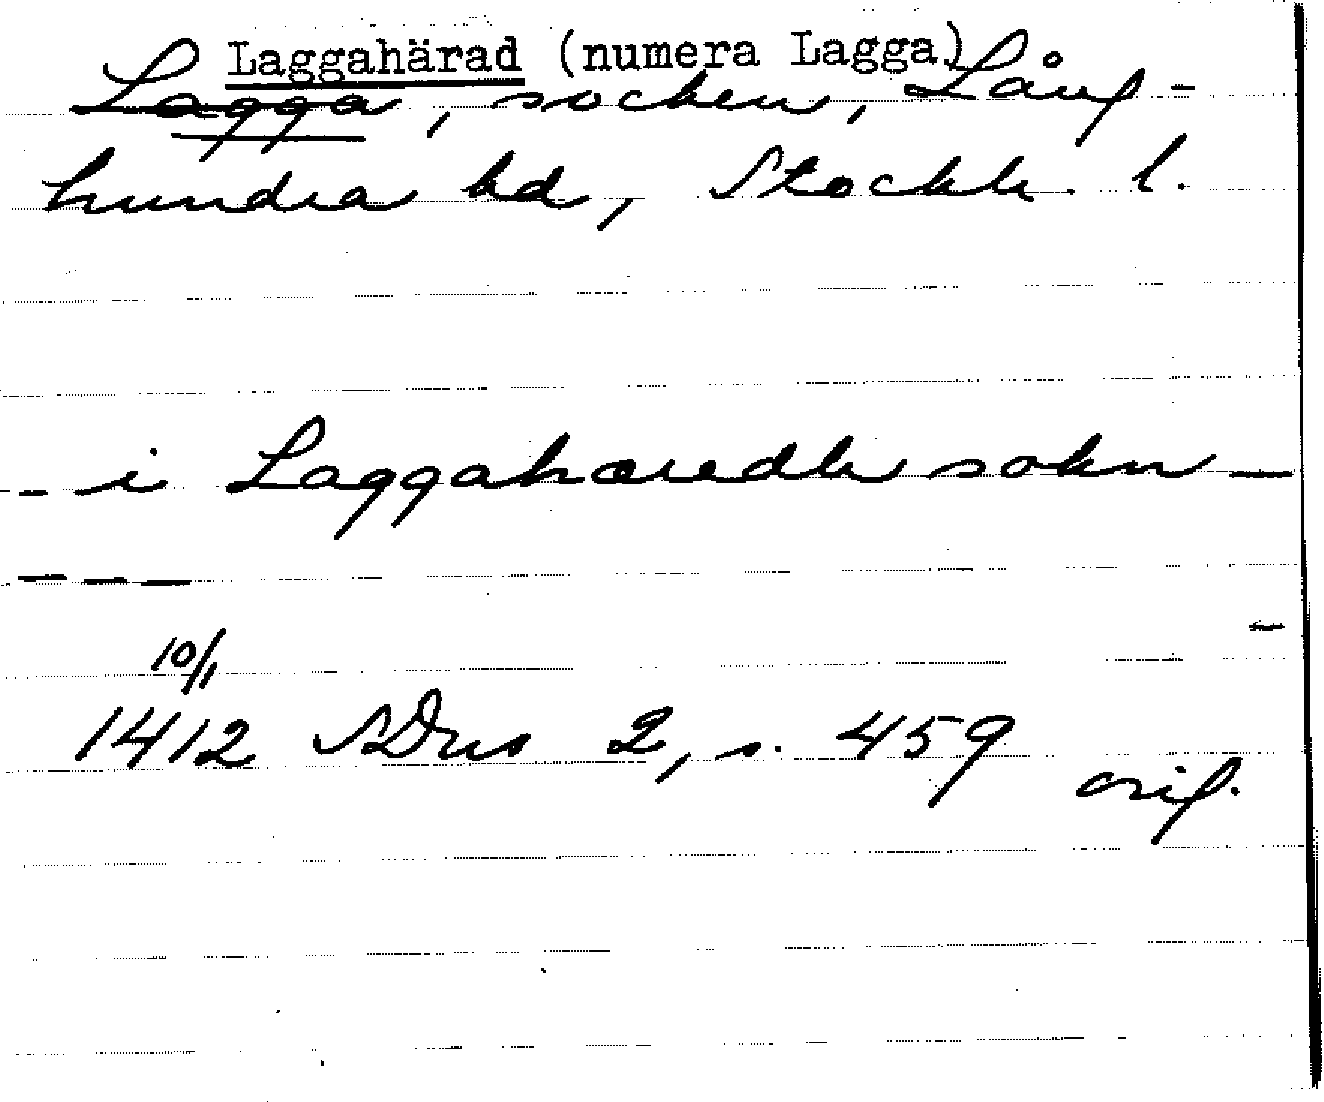 Laggahärad (numera Lagga)
Lagga, socken, Lång-
hundra hd, Stockh. l.
- - i Laggahæredh sokn —
— — —
10/1
1412 SDns 2, s. 459
orig.